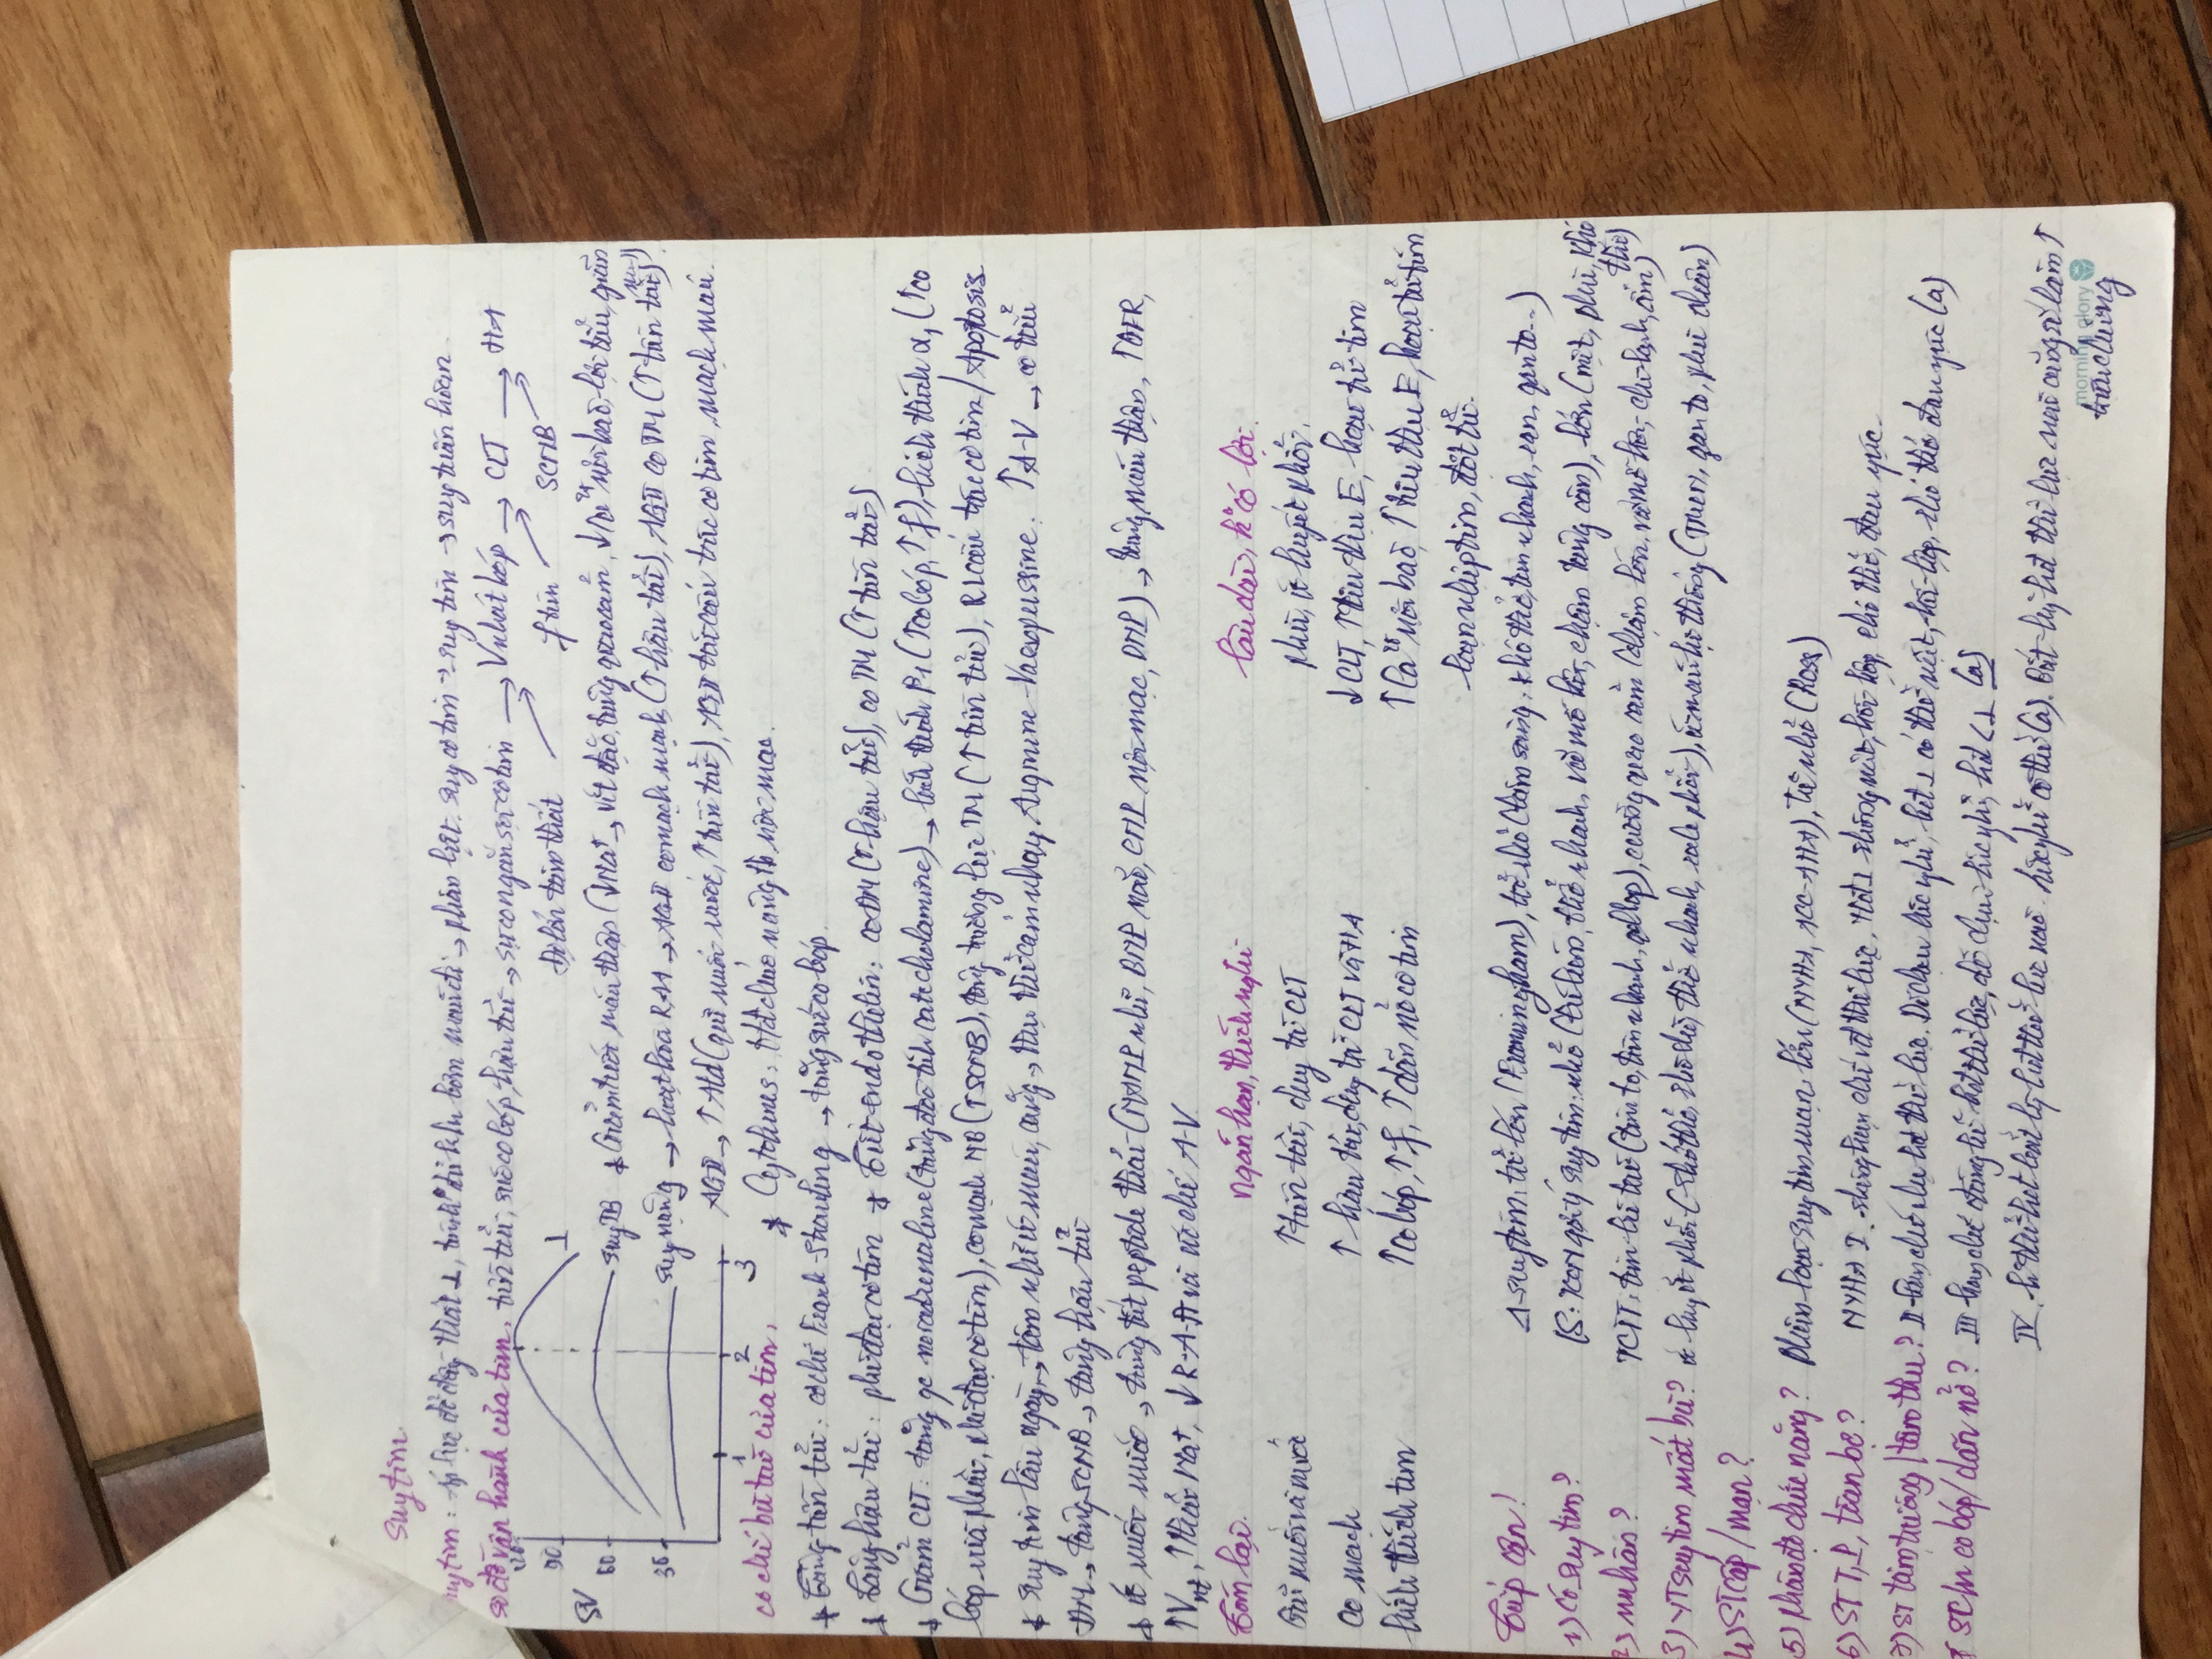 Suy tim
suy tim: áp lực đổ đầy thất ⊥, tim k° đủ khả bơm máu đi → phân biệt suy cơ tim → suy tim → suy tuần hoàn
sơ đồ vận hành của tim: tiền tải, sức co bóp, hậu tải → sự co ngắn sợi cơ tim → V nhát bóp → CLT → HA
Độ lớn tâm thất f tim SCMB
SV
90
60
30
1 2 3
⊥
suy TB
suy nặng
* Giảm tưới máu thận (↓Na⁺ → vết đặc, tăng giao cảm, ↓Ca²⁺ nội bào, lợi tiểu, giãn
→ hoạt hóa RAA → AGII co mạch mạnh (↑hậu tải), AGII co TM (↑ tiền tải)
AGII → ↑Ald (giữ muối nước, ↑tiền tải), AGII tái cấu trúc cơ tim, mạch máu.
cơ chế bù trừ của tim:
* Cytokines: ↓ chức năng tb nội mạc.
* Tăng tiền tải: cơ chế Frank-Starling → tăng sức co bóp.
* Tăng hậu tải: phì đại cơ tim * Tiết endothelin: co ĐM (↑hậu tải), co TM (↑ tiền tải)
* Giảm CLT: tăng gc noradrenaline (tăng độc tính catecholamine) → kích thích β1 (↑co bóp, ↑f), kích thích α1 (↑co
bóp vừa phải, phì đại cơ tim), co mạch NB (↑SCNB), tăng trương lực TM (↑ tiền tải), RL cấu trúc cơ tim / Apoptosis
* Suy tim lâu ngày → tâm nhĩ ứ máu, căng → thụ thể cảm nhạy Arginine-Vasopressine. ↑A-V → co tiểu
ĐM → tăng SCNB → tăng hậu tải
* ứ muối nước → tăng tiết peptide thải (NANP nhĩ, BNP não, CNP nội mạc, DNP) → tăng máu thận, ↑GFR,
↑Vnt, ↑thải Na⁺, ↓R-A-A và ức chế A-V
Tóm lại. ngắn hạn, thích nghi lâu dài, k° có lợi.
Giữ muối và nước ↑tiền tải, duy trì CLT phù, ứ huyết phổi.
Co mạch ↑ hậu tải, duy trì CLT và HA ↓CLT, ↑tiêu thụ E, hoại tử tim
kích thích tim ↑co bóp, ↑f, ↑dãn nở cơ tim ↑Ca²⁺ nội bào, ↑tiêu thụ E, hoại tử tim
loạn nhịp tim, đột tử.
Tiếp cận! Δ suy tim: trẻ lớn (Framingham), trẻ nhỏ (lâm sàng: khó thở, tim nhanh, ran, gan to...)
1) Có suy tim? LS: TCCN gợi ý suy tim: nhỏ (bú kém, thở nhanh, vã mồ hôi, chậm tăng cân), lớn (mệt, phù, khó
thở)
2) nnhân? TCTT: tim bù trừ (tim to, tim nhanh, gallop), cường giao cảm (chậm lớn, vã mồ hôi, chi lạnh, ẩm)
3) YT suy tim mất bù? ứ huyết phổi (khó thở, khò khè, thở nhanh, rale phổi), ứ máu hệ thống (TMCN, gan to, phù chân)
4) ST cấp / mạn?
5) phân độ chức năng? Phân loại suy tim mạn: lớn (NYHA, ACC-AHA), trẻ nhỏ (Ross)
6) ST T, P, toàn bộ? NYHA I. không hạn chế vđ thể lực. Hđ ⊥ không mệt, hồi hộp, khó thở, đau ngực.
7) ST tâm trương / tâm thu? II hạn chế nhẹ hđ thể lực. Dễ chịu lúc nghỉ, hđ ⊥ có thể mệt, hồi hộp, khó thở đau ngực (a)
8 ST ch co bóp / dãn nở? III hạn chế đáng kể hđ thể lực, dễ chịu lúc nghỉ, hđ < ⊥ (a)
IV. k thể hđ bất kỳ hđ thể lực nào. lúc nghỉ có thể (a). Bất kỳ hđ thể lực nào cũng sẽ làm ↑
triệu chứng
morning glory